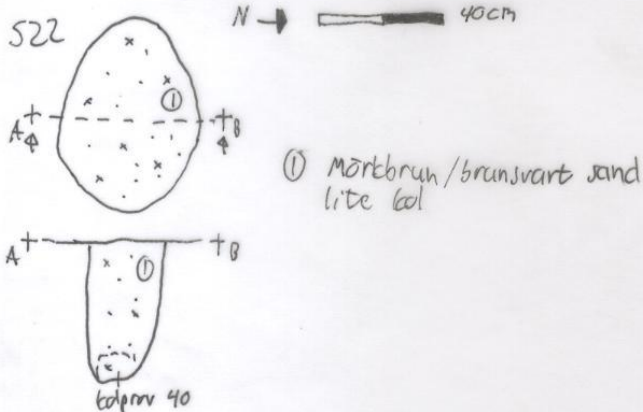 522
N
40cm
①
A
B
① Mörkbrun/brunsvart sand
lite kol
A
B
①
kolprov 40